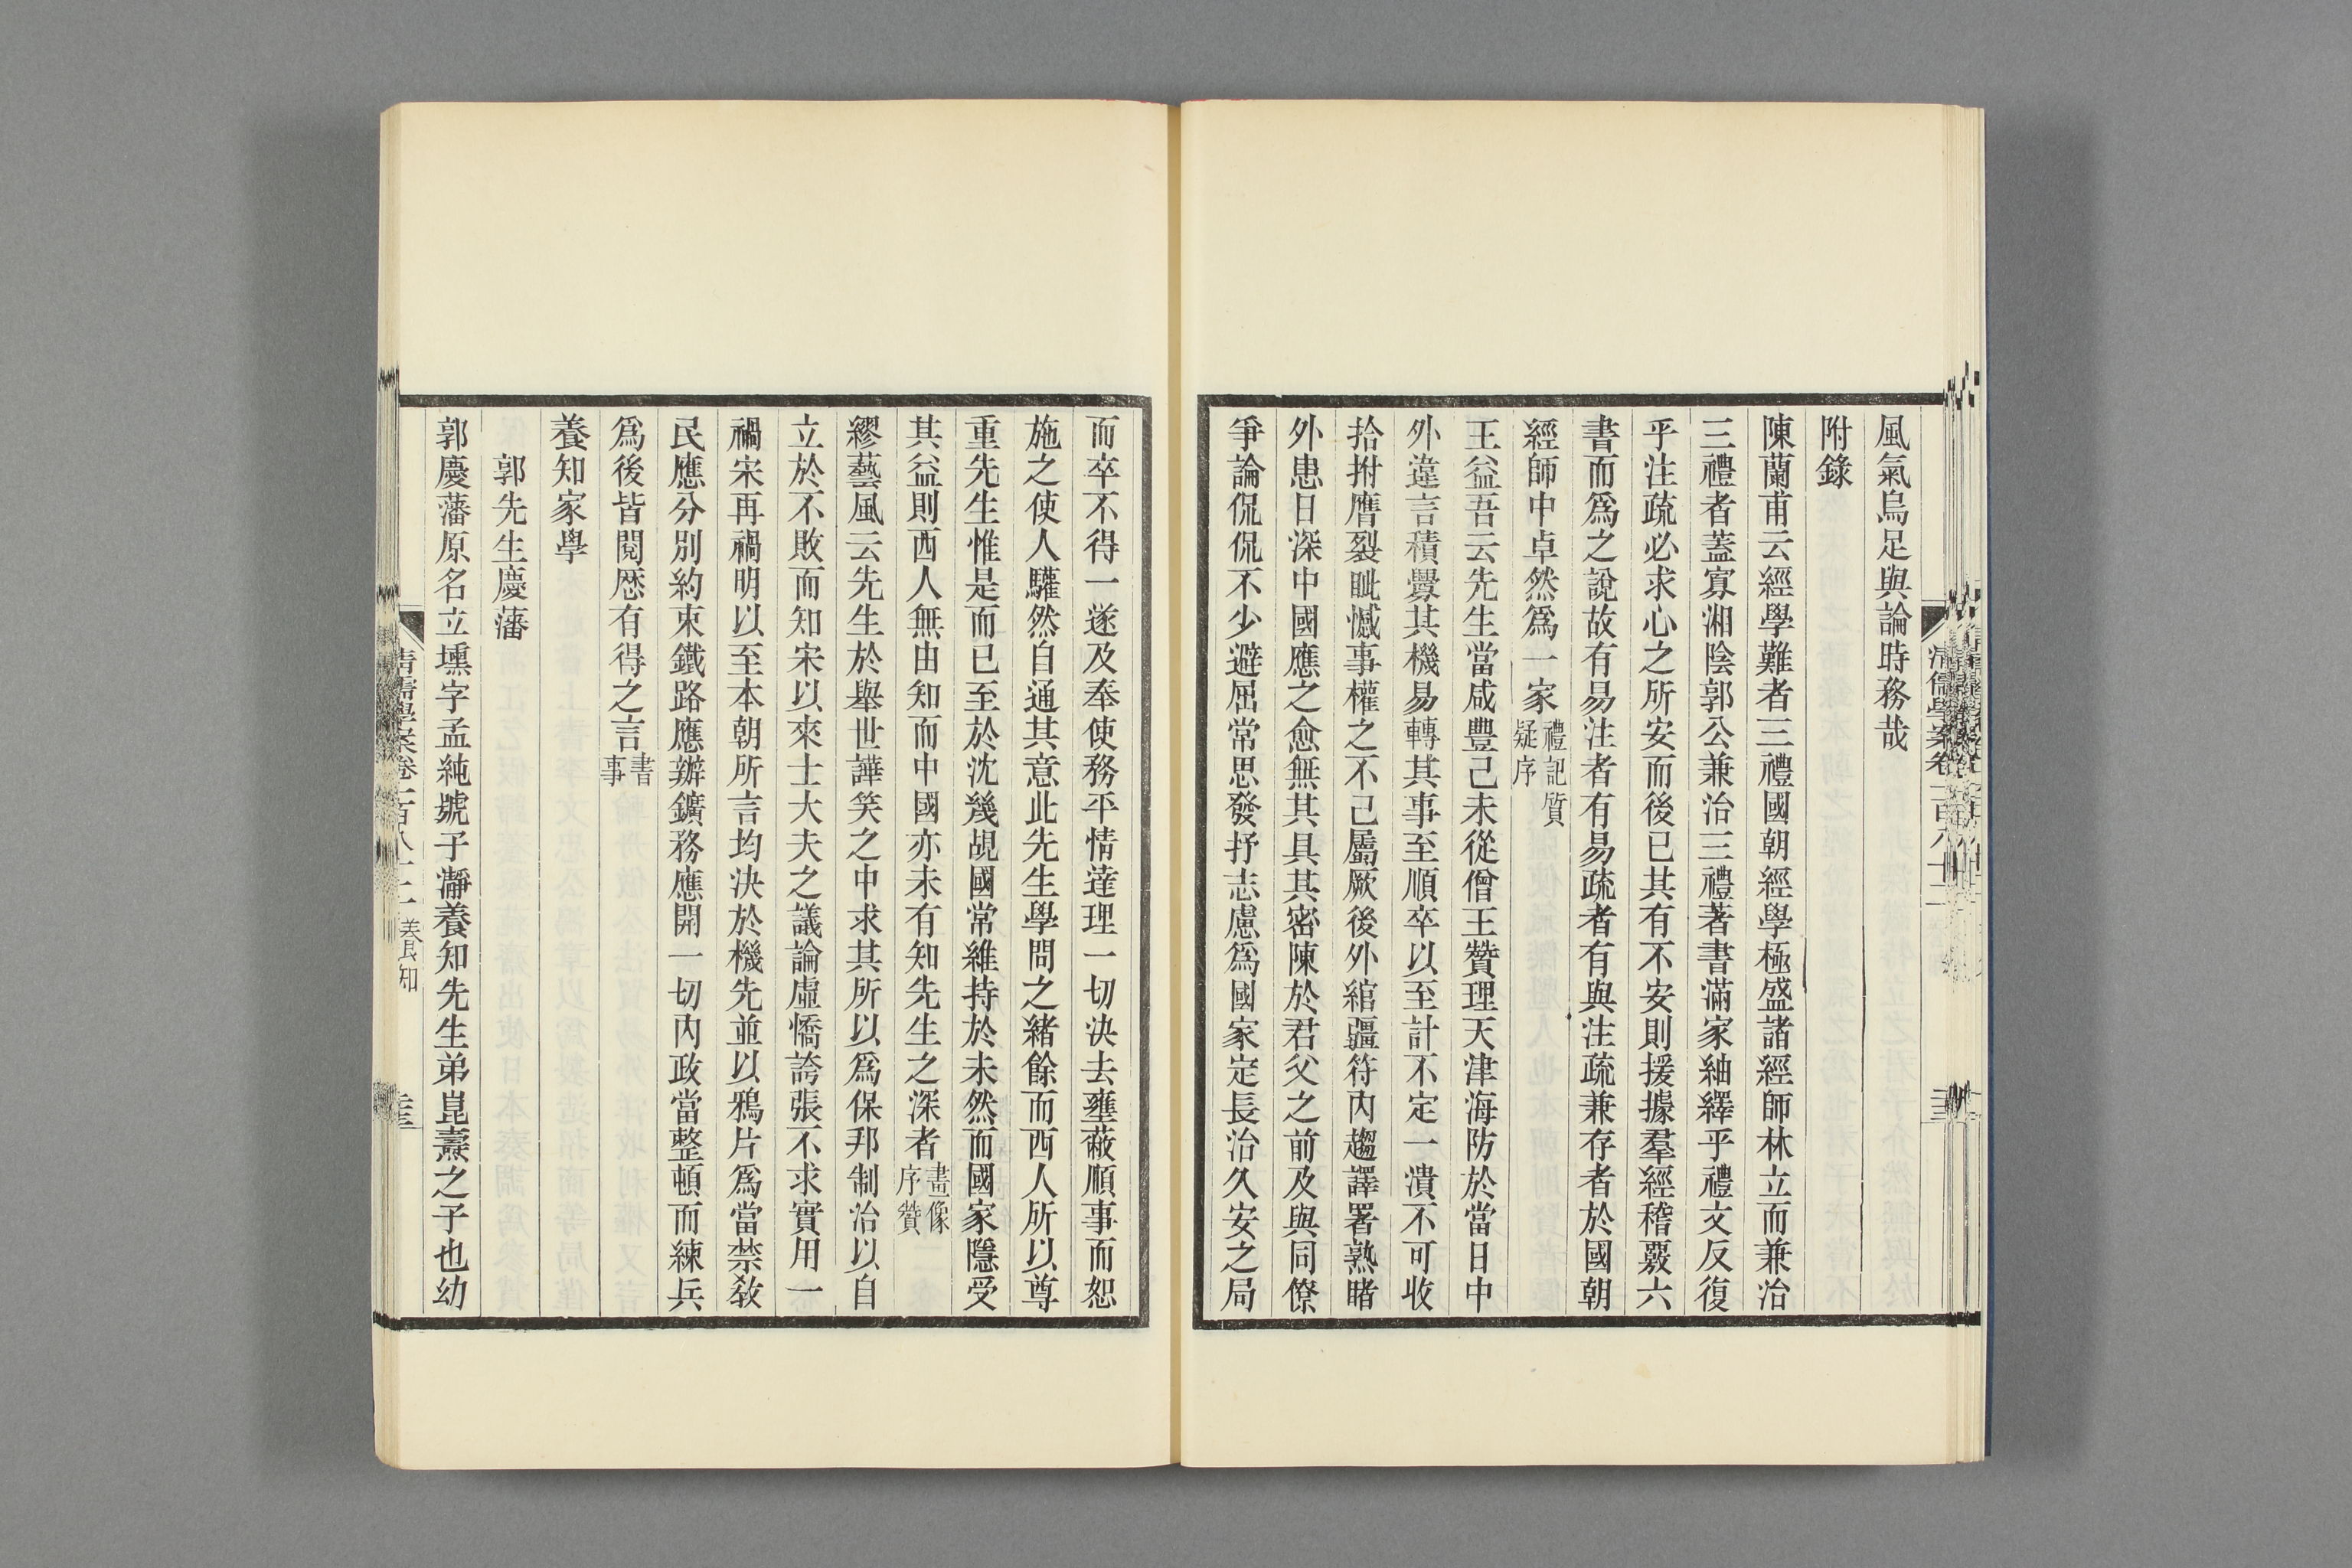 風氣烏足與論時務哉
附錄
陳蘭甫云經學難者三禮國朝經學極盛諸經師林立而兼治
三禮者蓋寡湘陰郭公兼治三禮著書滿家紬繹乎禮文反復
乎注疏必求心之所安而後已其有不安則援據羣經稽覈六
書而爲之說故有易注者有易疏者有與注疏兼存者於國朝
經師中卓然爲一家禮記質疑序
王益吾云先生當咸豐己未從僧王贊理天津海防於當日中
外違言積釁其機易轉其事至順卒以至計不定一潰不可收
拾拊膺裂眦憾事權之不己屬厥後外綰疆符內趨譯署熟睹
外患日深中國應之愈無其具其密陳於君父之前及與同僚
爭論侃侃不少避屈常思發抒志慮爲國家定長治久安之局
而卒不得一遂及奉使務平情達理一切決去壅蔽順事而恕
施之使人驩然自通其意此先生學問之緒餘而西人所以尊
重先生惟是而已至於沈幾覘國常維持於未然而國家隱受
其益則西人無由知而中國亦未有知先生之深者畫像序贊
繆藝風云先生於舉世譁笑之中求其所以爲保邦制治以自
立於不敗而知宋以來士大夫之議論虛憍誇張不求實用一
禍宋再禍明以至本朝所言均決於機先並以鴉片爲當禁敎
民應分別約束鐵路應辦鑛務應開一切內政當整頓而練兵
爲後皆閱歷有得之言書事
養知家學
郭先生慶藩
郭慶藩原名立壎字孟純號子瀞養知先生弟崑燾之子也幼
清儒學案卷一百八十二